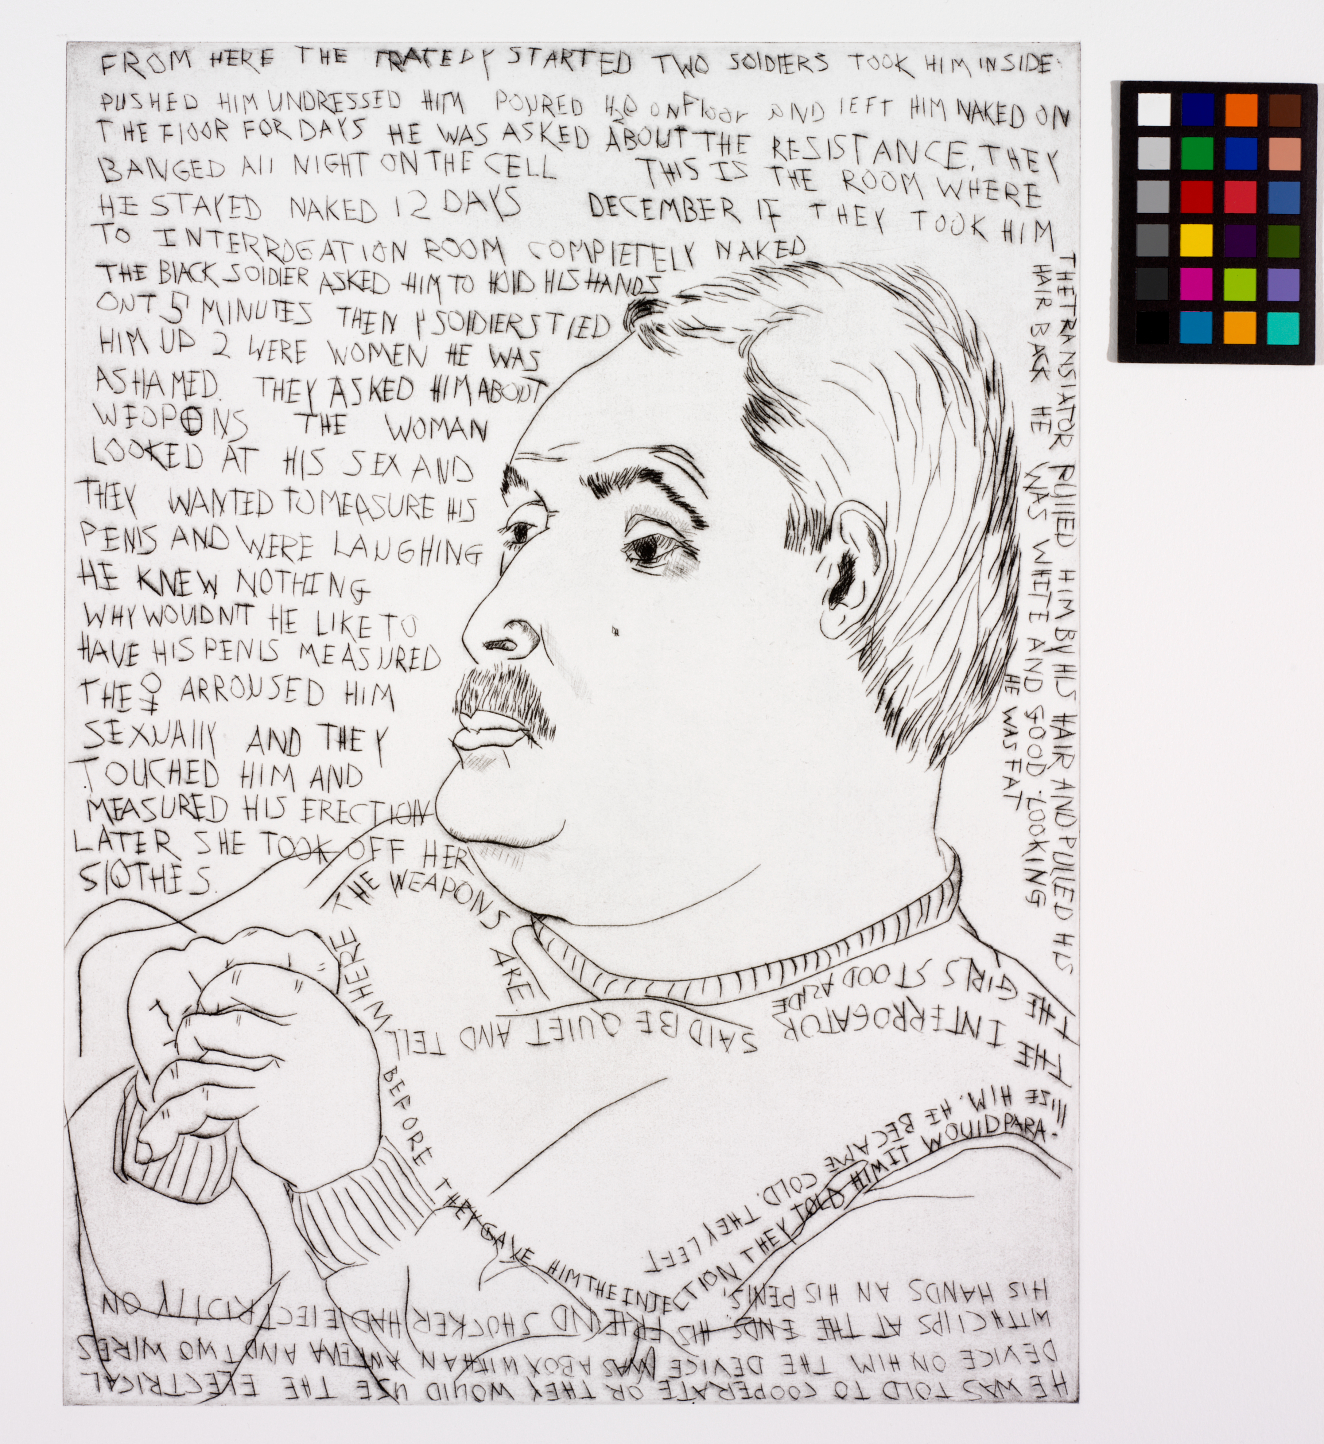 FROM HERE THE TRAGEDY STARTED TWO SOIDIERS TOOK HIM INSIDE
PUSHED HIM UNDRESSED HIM POURED H2O ON FlOOr AND lEFT HIM NAKED ON
THE FlOOR FOR DAYS HE WAS ASKED ABOUT THE RESISTANCE, THEY
BANGED All NIGHT ON THE CELL THIS IS THE ROOM WHERE
HE STAYED NAKED 12 DAYS DECEMBER 17 THEY TOOK HIM
TO INTERROGATION ROOM COMPlETELY NAKED
THE BlACK SOlDIER ASKED HIM TO HOlD HIS HANDS
ONT 5 MINUTES THEN 4 SOlDIERS TIED
HIM UP 2 WERE WOMEN HE WAS
ASHAMED. THEY ASKED HIM ABOUT
WEOPONS THE WOMAN
LOOKED AT HIS SEX AND
THEY WANTED TO MEASURE HIS
PENIS AND WERE LAUGHING
HE KNEW NOTHING
WHY WOUlDN'T HE LIKE TO
HAVE HIS PENIS MEASURED
THE ♀ ARROUSED HIM
SEXUAllY AND THEY
TOUCHED HIM AND
MEASURED HIS ERECTION
LATER SHE TOOK OFF HER
SlOTHES.
THE TRANSlATOR PUllED HIM BY HIS HAIR AND PUllED HIS
HAIR BACK HE WAS WHITE AND GOOD LOOKING
HE WAS FAT
THE GIRLS STOOD ASIDE
THE INTERROGATOR SAID BE QUIET AND TELL
WHERE THE WEAPONS ARE
BEFORE THEY GAVE HIM THE INJECTION THEY TOLD HIM IT WOUlD PARA-
lIZE HIM. HE BECAME COLD. THEY LEFT
HE WAS TOLD TO COOPERATE OR THEY WOUlD USE THE ELECTRICAL
DEVICE ON HIM THE DEVICE WAS A BOX WITH AN ANTENA AND TWO WIRES
WITH CLIPS AT THE ENDS. HIS FRIEND SHOCKER HAD ElECTRIDITY ON
HIS HANDS AN HIS PENIS.